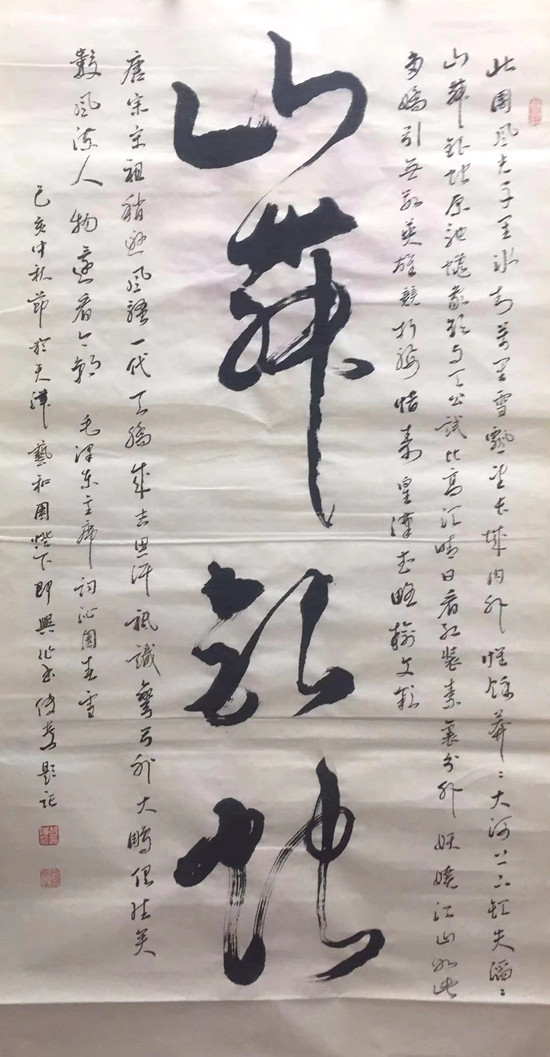 北国風光千里冰封萬里雪飄望長城内外惟餘莽〻大河上下頓失滔〻
山舞銀蛇原馳蠟象欲与天公試比高須晴日看紅装素裹分外妖嬈江山如此
多嬌引無數英雄競折腰惜秦皇漢武略輸文彩
山舞銀蛇
唐宗宋祖稍遜風騷一代天驕成吉思汗祗識彎弓射大鵰俱往矣
數風流人物還看今朝 毛澤東主席詞沁園春雪
己亥中秋節於天津藝和園燈下即興作书題記